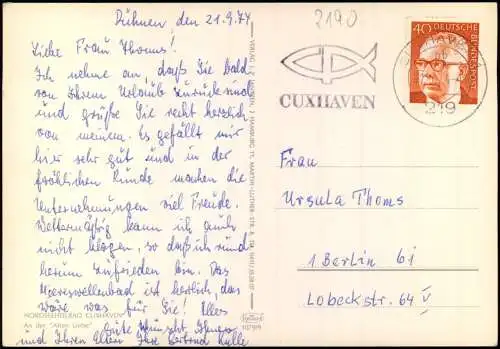 Duhnen den 21.9.74
Liebe Frau Thoms!
Ich nehme an, daß Sie bald
von Ihrem Urlaub zurück sind
und grüße Sie recht herzlich
von meinem. Es gefällt mir
hier sehr gut und in der
fröhlichen Runde machen die
Unternehmungen viel Freude.
Wettermäßig kann ich auch
nicht klagen, so daß ich rund
herum zufrieden bin. Das
Meereswellenbad ist herrlich, das
wäre was für Sie! Alles
Gute wünscht Ihnen
und Ihren Eltern Ihre Gertrud
NORDSEEHEILBAD CUXHAVEN
An der "Alten Liebe"
2190
CUXHAVEN
40 DEUTSCHE BUNDESPOST
219
Frau
Ursula Thoms
1 Berlin 61
Lobeckstr. 64 V